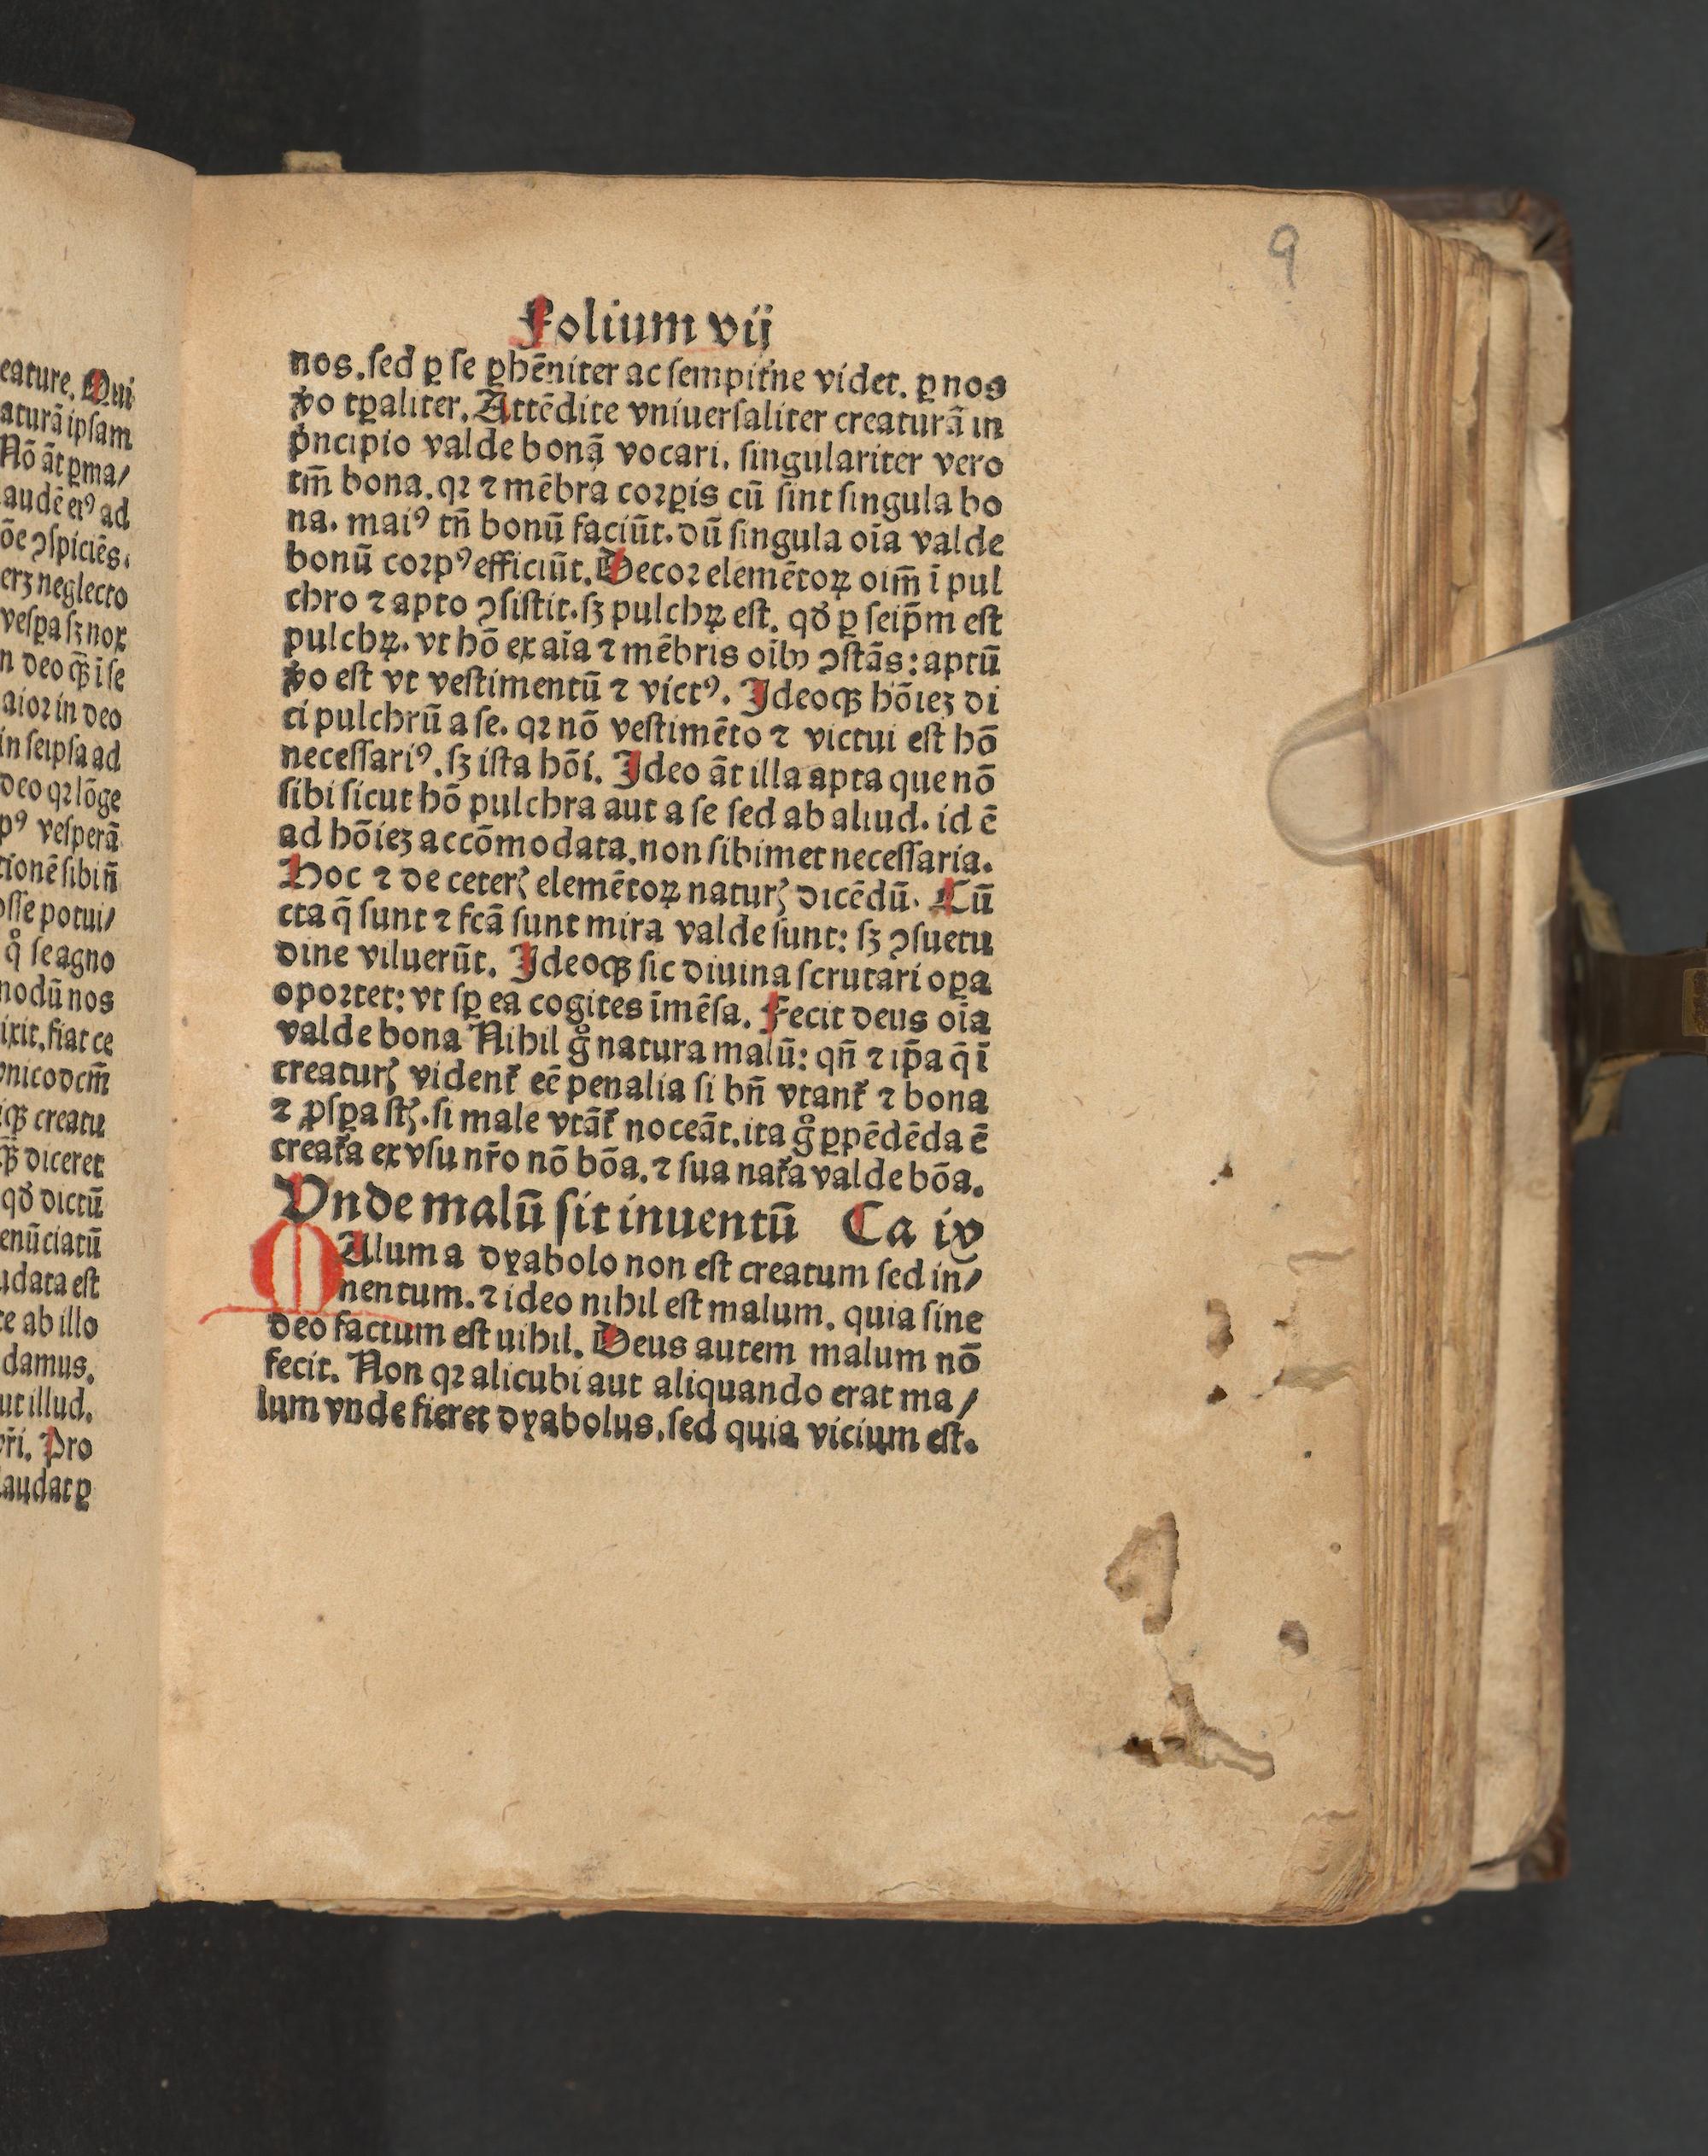 eature. Qui
aturā ipsam
Nō āt ꝑma/
audē eiꝰ ad
ōe ꝯspiciēs.
erꝫ neglecto
vesꝑa sꝫ nox
n deo ꝙ̄ ī se
aior in deo
in seipsa ad
deo qꝛ lōge
pꝰ vesperā
tionē sibi n̄
osse potui/
q̊ se agno
modū nos
ixit. fiat ce
vnico dcm̄
iqꝫ creatu
diceret
qd̓ dictū
enūciatū
udata est
te ab illo
damus.
ut illud.
vr̄i. Pro
laudat ꝑ
9
Folium vij
nos. sed ꝑ se ꝑhēniter ac sempit̓ne videt. ꝑ nos
v̓o tꝑaliter. Attēdite vniuersaliter creaturā in
p̓ncipio valde bonā vocari. singulariter vero
tm̄ bona. qꝛ ⁊ mēbra corꝑis cū sint singula bo
na. maiꝰ tn̄ bonū faciūt. dū singula oīa valde
bonū corpꝰ efficiūt. Decor elemētoꝝ oim̄ ī pul
chro ⁊ apto ꝯsistit. sꝫ pulchꝝ est. qd̓ ꝑ seip̄m est
pulchꝝ. vt hō ex aīa ⁊ mēbris oibꝰ ꝯstās: aptū
v̓o est vt vestimentū ⁊ victꝰ. Ideoqꝫ hōieꝫ di
ci pulchrū a se. qꝛ nō vestimēto ⁊ victui est hō
necessariꝰ. sꝫ ista hōi. Ideo āt illa apta que nō
sibi sicut hō pulchra aut a se sed ab aliud. id ē
ad hōieꝫ accōmodata. non sibimet necessaria.
Hoc ⁊ de ceterꝭ elemētoꝝ naturꝭ dicēdū. Cū
cta q̄ sunt ⁊ fcā sunt mira valde sunt: sꝫ ꝯsuetu
dine viluerūt. Ideoqꝫ sic diuina scrutari oꝑa
oportet: vt sꝑ ea cogites īmēsa. Fecit deus oīa
valde bona Nihil g̊ natura malū: qn̄ ⁊ ip̄a q̄ ī
creaturꝭ vident̓ eē penalia si bn̄ vtant̓ ⁊ bona
⁊ ꝓsꝑa stꝭ. si male vtāt̓ noceāt. ita g̊ ꝑpēdēda ē
creat̓a ex vsu nr̄o nō bōa. ⁊ sua nat̓a valde bōa.
Vnde malū sit inuentū Ca ix
MAlum a dyabolo non est creatum sed in/
nentum. ⁊ ideo nihil est malum. quia sine
deo factum est uihil. Deus autem malum nō
fecit. Non qꝛ alicubi aut aliquando erat ma/
lum vnde fieret dyabolus. sed quia vicium est.